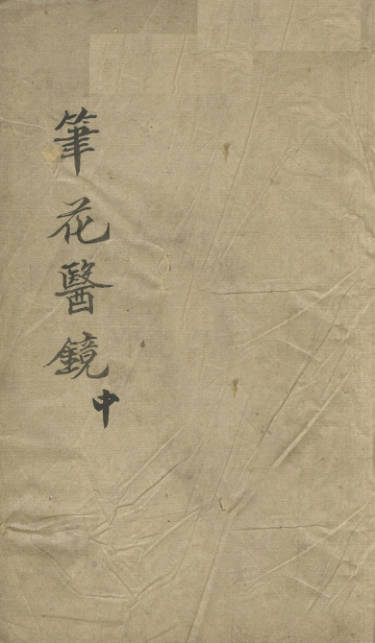 筆花醫鏡中